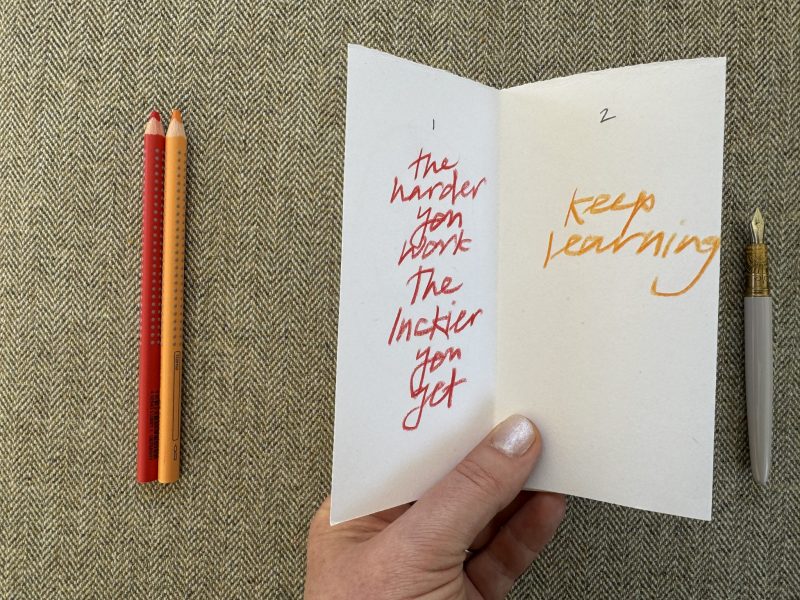 1
the
harder
you
work
the
lnckier
you
yet
2
keep
learning